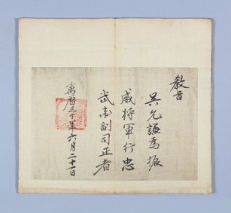 教旨
吳允謙爲振
威將軍行忠
武衛副司正者
萬曆三十年六月二十一日